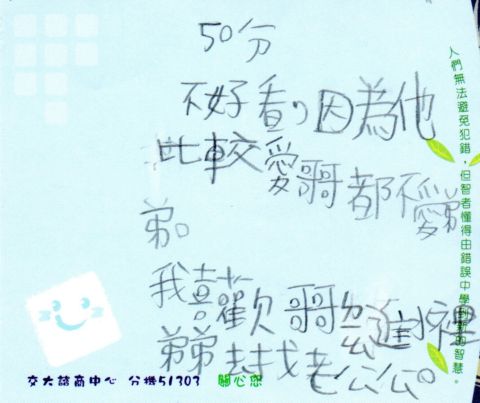 50分
不好看，因為他
比較愛哥哥都不愛弟
弟。
我喜歡哥哥裡
弟弟去找老公公。
人們無法避免犯錯，但智者懂得由錯誤中學到新的智慧。
交大諮商中心 分機51303 關心您